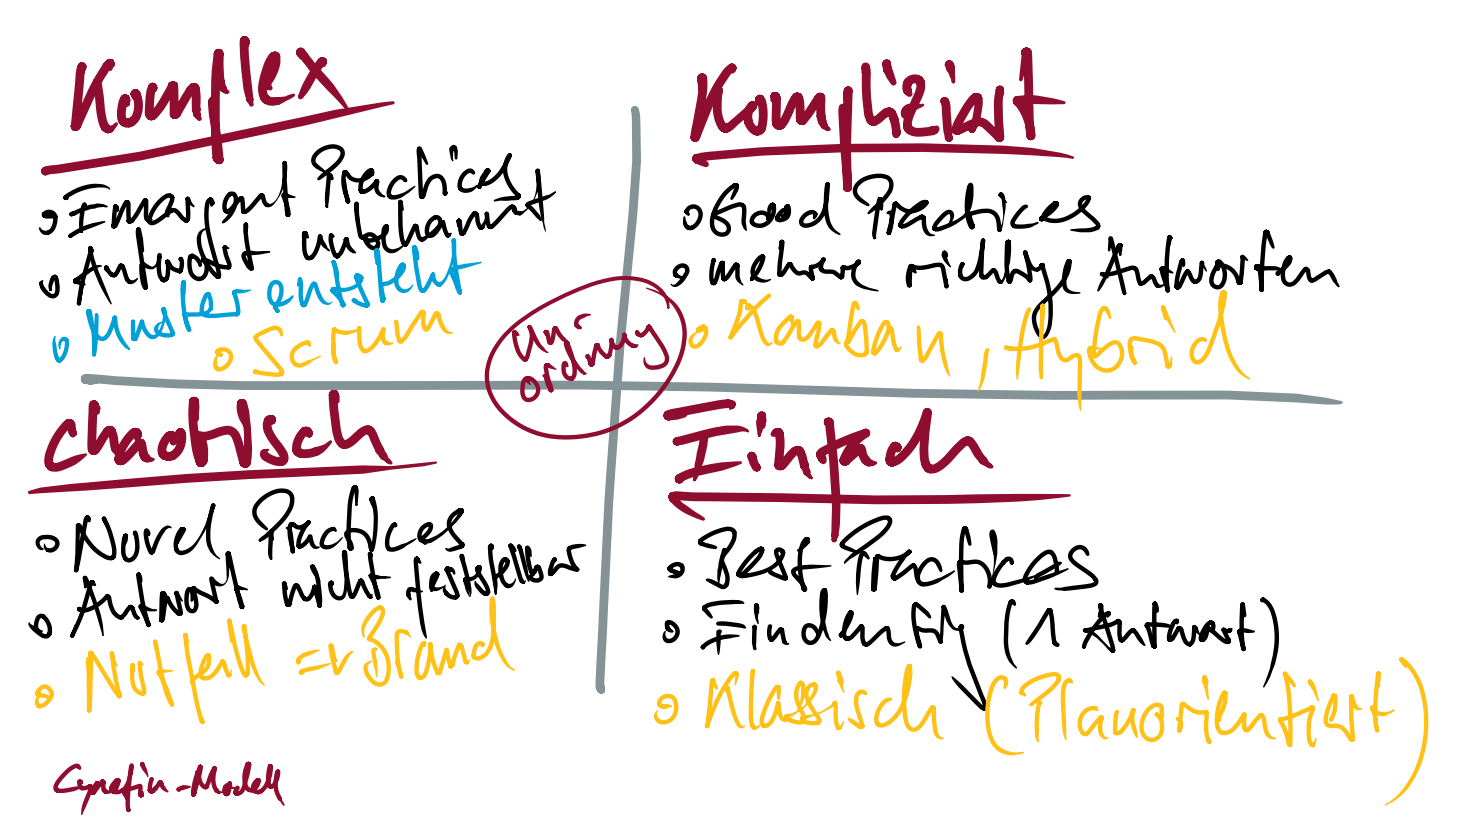 Komplex
Emergent Practices
Antwort unbekannt
Muster entsteht
Scrum
Kompliziert
Good Practices
mehrere richtige Antworten
Kanban, Hybrid
Un-
ordnung
Chaotisch
Novel Practices
Antwort nicht feststellbar
Notfall => Brand
Einfach
Best Practices
(1 Antwort)
Klassisch (Planorientiert)
Cynefin-Modell